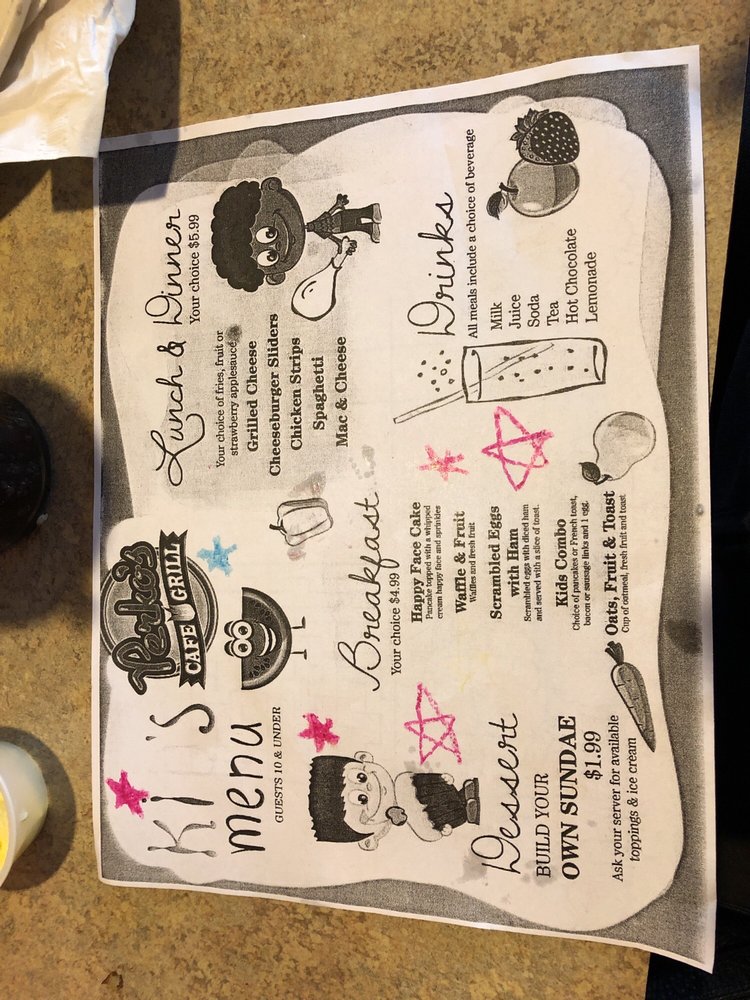 Perko's
CAFE GRILL
KI 'S
menu
GUESTS 10 & UNDER
Lunch & Dinner
Your choice $5.99
Your choice of fries, fruit or
strawberry applesauce
Grilled Cheese
Cheeseburger Sliders
Chicken Strips
Spaghetti
Mac & Cheese
Breakfast
Your choice $4.99
Happy Face Cake
Pancake topped with a whipped
cream happy face and sprinkles
Waffle & Fruit
Waffles and fresh fruit
Scrambled Eggs
with Ham
Scrambled eggs with diced ham
and served with a slice of toast.
Kids Combo
Choice of pancakes or French toast,
bacon or sausage links and 1 egg.
Oats, Fruit & Toast
Cup of oatmeal, fresh fruit and toast
Drinks
All meals include a choice of beverage
Milk
Juice
Soda
Tea
Hot Chocolate
Lemonade
Dessert
BUILD YOUR
OWN SUNDAE
$1.99
Ask your server for available
toppings & ice cream